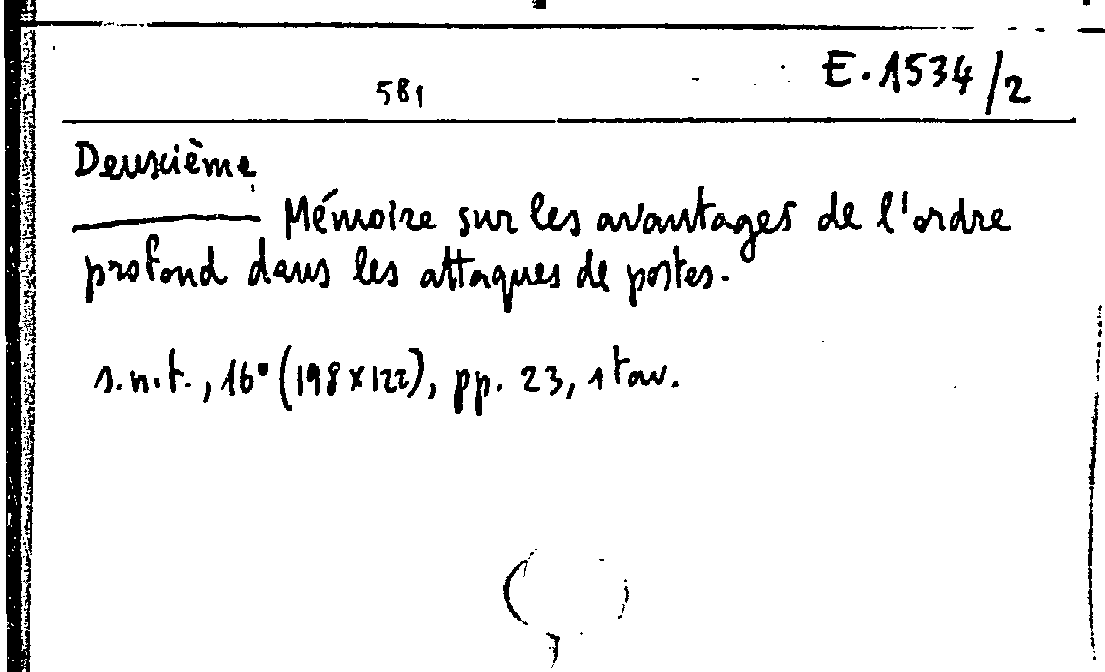 581 E.1534/2
Deuxième
Mémoire sur les avantages de l'ordre
profond dans les attaques de postes.
s.n.t., 16° (198x122), pp. 23, 1 tav.